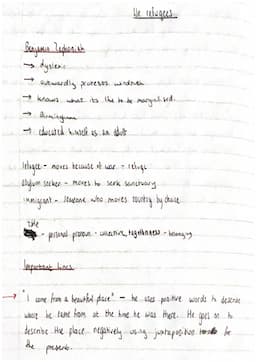 We refugees
Benjamin Zephaniah
→ dyslexic
→ outwardly windrush
→ knows what its like to be marginalised.
→ Birmingham
→ educated himself as an adult
refugee - moves because of war - refuge
Asylum seeker - moves to seek sanctuary
immigrant - someone who moves country by choice
Title
- personal pronoun - collective, togetherness - belonging
Important lines
→ "I come from a beautiful place" - he uses positive words to describe
where he came from at the time he was there. He goes on to
describe the place negatively using juxtaposition for
the present.